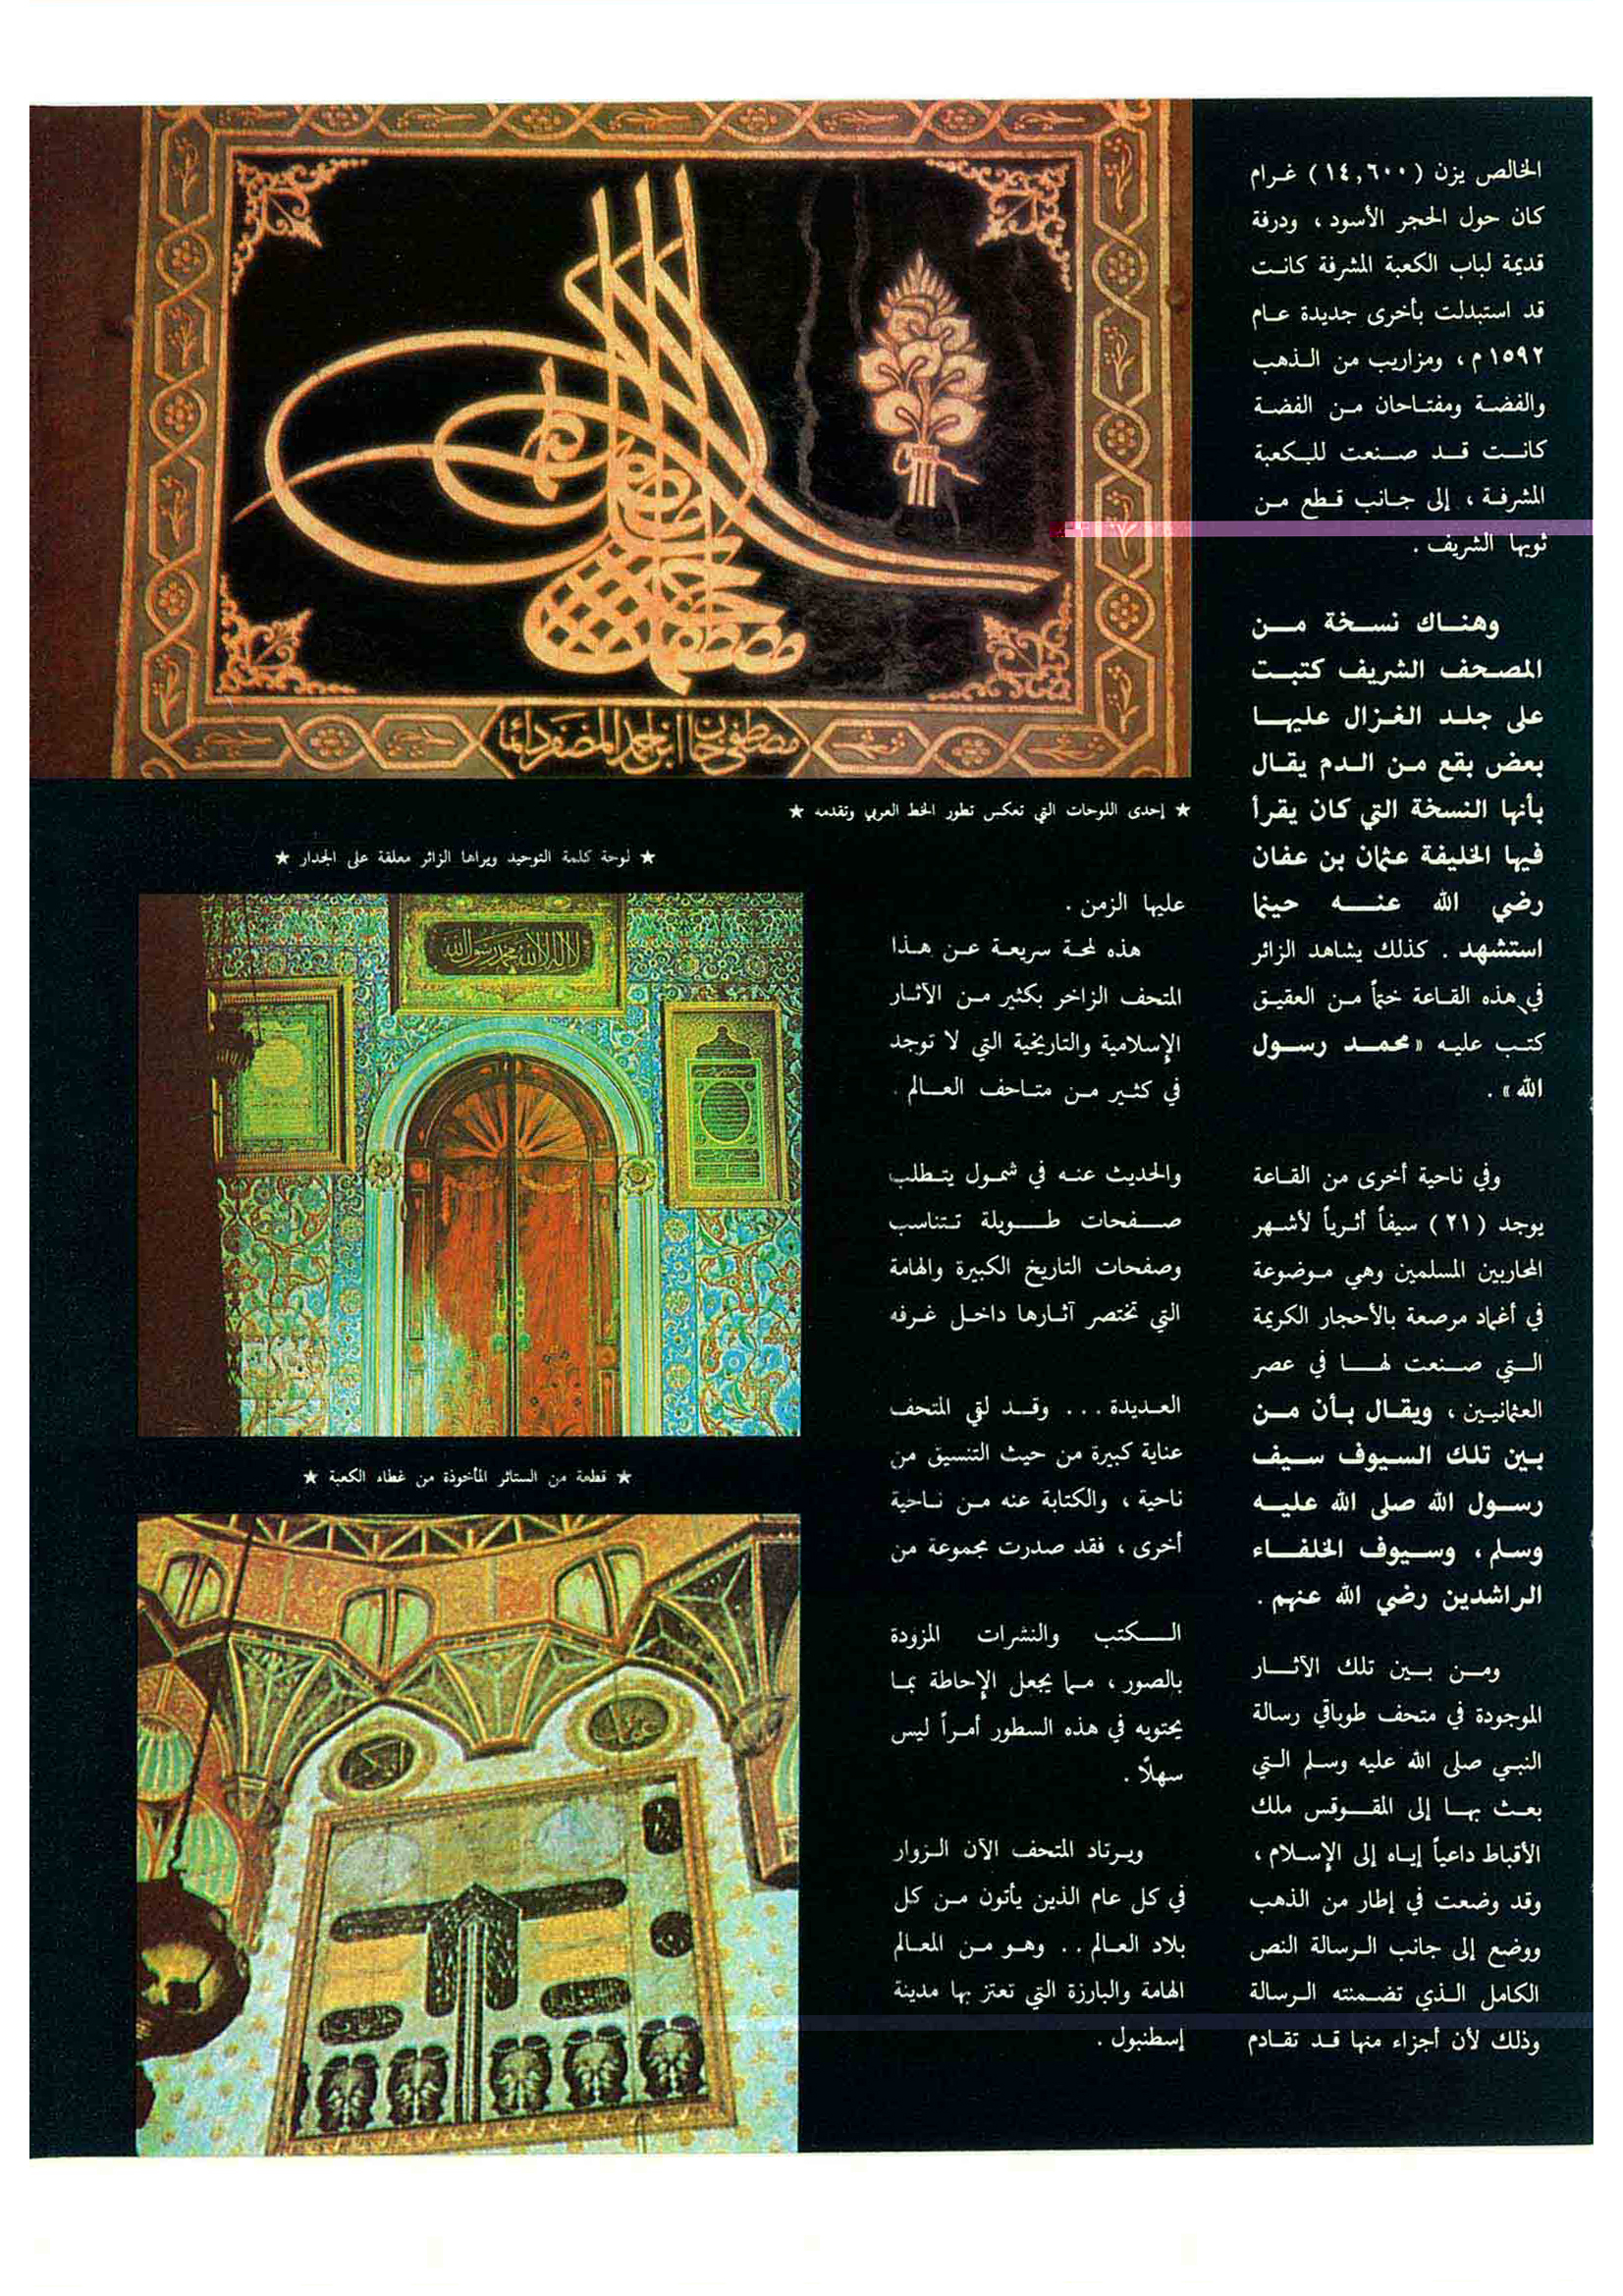 الخالص يزن (١٤,٦٠٠) غرام
كان حول الحجر الأسود ، ودرفة
قديمة لباب الكعبة المشرفة كانت
قد استبدلت بأخرى جديدة عام
١٥٩٢ م ، ومزاريب من الذهب
والفضة ومفتاحان من الفضة
كانت قد صنعت للكعبة
المشرفة ، إلى جانب قطع من
ثوبها الشريف .
وهناك نسخة من
المصحف الشريف كتبت
على جلد الغزال عليها
بعض بقع من الدم يقال
بأنها النسخة التي كان يقرأ
فيها الخليفة عثمان بن عفان
رضي الله عنه حينما
استشهد . كذلك يشاهد الزائر
في هذه القاعة ختماً من العقيق
كتب عليه « محمد رسول
الله » .
وفي ناحية أخرى من القاعة
يوجد (٢١) سيفاً أثرياً لأشهر
المحاربين المسلمين وهي موضوعة
في أغماد مرصعة بالأحجار الكريمة
التي صنعت لها في عصر
العثمانيين ، ويقال بأن من
بين تلك السيوف سيف
رسول الله صلى الله عليه
وسلم ، وسيوف الخلفاء
الراشدين رضي الله عنهم .
ومن بين تلك الآثار
الموجودة في متحف طوباقي رسالة
النبي صلى الله عليه وسلم التي
بعث بها إلى المقوقس ملك
الأقباط داعياً إياه إلى الإسلام ،
وقد وضعت في إطار من الذهب
ووضع إلى جانب الرسالة النص
الكامل الذي تضمنته الرسالة
وذلك لأن أجزاء منها قد تقادم
عليها الزمن .
هذه لمحة سريعة عن هذا
المتحف الزاخر بكثير من الآثار
الإسلامية والتاريخية التي لا توجد
في كثير من متاحف العالم .
والحديث عنه في شمول يتطلب
صفحات طويلة تتناسب
وصفحات التاريخ الكبيرة والهامة
التي تختصر آثارها داخل غرفه
العديدة ... وقد لقي المتحف
عناية كبيرة من حيث التنسيق من
ناحية ، والكتابة عنه من ناحية
أخرى ، فقد صدرت مجموعة من
الكتب والنشرات المزودة
بالصور ، مما يجعل الإحاطة بما
يحتويه في هذه السطور أمراً ليس
سهلاً .
ويرتاد المتحف الآن الزوار
في كل عام الذين يأتون من كل
بلاد العالم .. وهو من المعالم
الهامة والبارزة التي تعتز بها مدينة
إسطنبول .
مصطفى خان ابن احمد المظفر دائما
★ إحدى اللوحات التي تعكس تطور الخط العربي وتقدمه ★
★ لوحة كلمة التوحيد ويراها الزائر معلقة على الجدار ★
لا اله الا الله محمد رسول الله
★ قطعة من الستائر المأخوذة من غطاء الكعبة ★